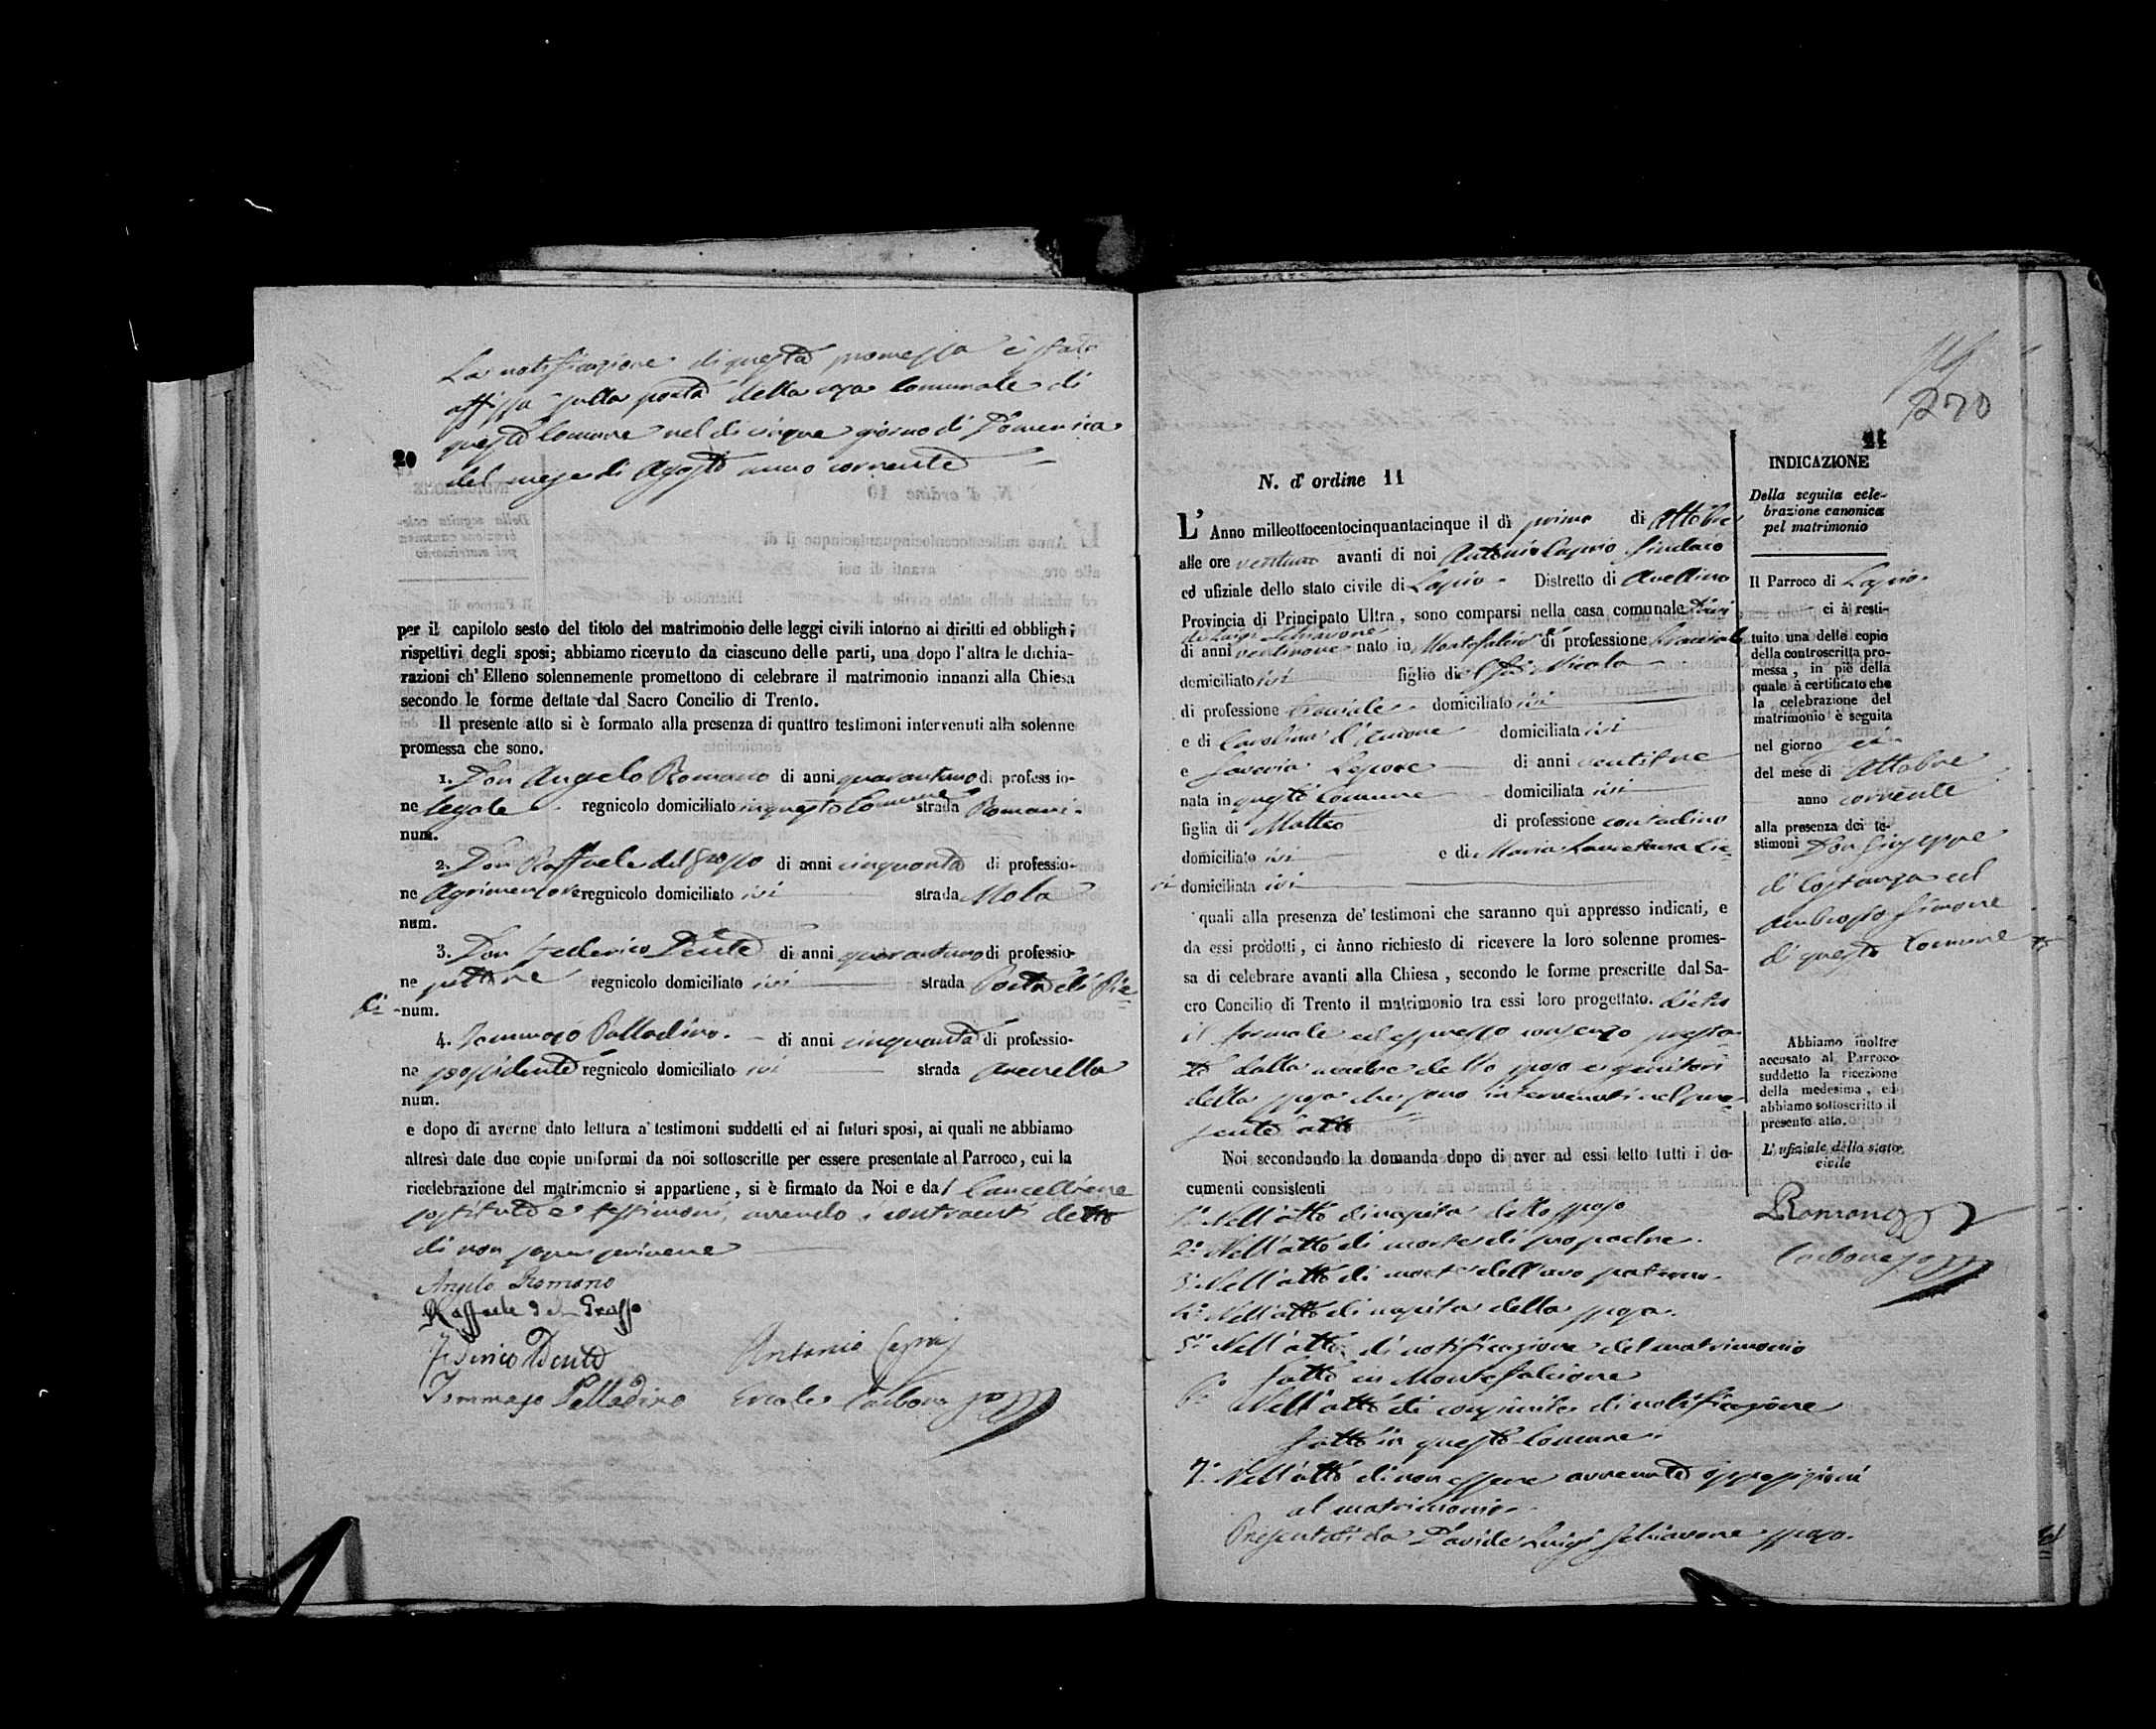 La notificazione di questa promessa è stata
affissa sulla porta della casa Comunale di
questo Comune nel dì cinque giorno di Domenica
del mese di Agosto anno corrente
20
per il capitolo sesto del titolo del matrimonio delle leggi civili intorno ai diritti ed obblighi
rispettivi degli sposi; abbiamo ricevuto da ciascuno delle parti, una dopo l'altra le dichia-
razioni ch' Elleno solennemente promettono di celebrare il matrimonio innanzi alla Chiesa
secondo le forme dettate dal Sacro Concilio di Trento.
Il presente atto si è formato alla presenza di quattro testimoni intervenuti alla solenne
promessa che sono.
1. Don Angelo Romano di anni quarantuno di professio-
ne legale regnicolo domiciliato in questo Comune strada Romani
num.
2. Don Raffaele del Grosso di anni cinquanta di professio-
ne Agrimensore regnicolo domiciliato ivi strada Mola
num.
3. Don Federico Dente di anni quarantuno di professio-
ne regnicolo domiciliato ivi strada Porta di
num.
4. Tommaso Palladino. di anni cinquanta di professio-
ne possidente regnicolo domiciliato ivi strada
num.
e dopo di averne dato lettura a' testimoni suddetti ed ai futuri sposi, ai quali ne abbiamo
altresì date due copie uniformi da noi sottoscritte per essere presentate al Parroco, cui la
ricelebrazione del matrimonio si appartiene, si è firmato da Noi e dal Cancelliere
sostituto e testimoni, avendo i contraenti detto
di non saper scrivere
Angelo Romano
Raffaele del Grosso
Federico Dente Antonio
Tommaso Palladino Ercole Carbone
270
21
N. d' ordine 11
L' Anno milleottocentocinquantacinque il dì primo di Ottobre
alle ore ventuno avanti di noi Antonio Caprio Sindaco
ed ufiziale dello stato civile di Lapio Distretto di Avellino
Provincia di Principato Ultra, sono comparsi nella casa comunale
de Luigi Schiavone
di anni ventinove nato in di professione
domiciliato ivi figlio di Nicola
di professione domiciliato ivi
e di Carolina domiciliata ivi
e Saveria Lepore di anni ventitre
nata in questo Comune domiciliata ivi
figlia di Matteo di professione contadino
domiciliato ivi e di Maria
domiciliata ivi
quali alla presenza de' testimoni che saranno quì appresso indicati, e
da essi prodotti, ci ànno richiesto di ricevere la loro solenne promes-
sa di celebrare avanti alla Chiesa, secondo le forme prescritte dal Sa-
cro Concilio di Trento il matrimonio tra essi loro progettato. dietro
il formale ed espresso consenso presta
to dalla madre dello sposo e genitori
della sposa che sono intervenuti nel pre-
sente atto
Noi secondando la domanda dopo di aver ad essi letto tutti i do-
cumenti consistenti
1.° Nell'atto di nascita dello sposo
2.° Nell'atto di morte di suo padre.
3.° Nell'atto di morte dell'avo paterno.
4.° Nell'atto di nascita della sposa.
5.° Nell'atto di notificazione del matrimonio
fatto in Montefalcione
6.° Nell'atto di consimile di notificazione
fatto in questo Comune.
7.° Nell'atto di non essere avvenute opposizioni
al matrimonio.
Presentati da Davide Luigi Schiavone sposo.
INDICAZIONE
Della seguita cele-
brazione canonica
pel matrimonio
Il Parroco di Lapio
ci à resti-
tuito una delle copie
della controscritta pro-
messa, in piè della
quale à certificato che
la celebrazione del
matrimonio è seguita
nel giorno sei
del mese di Ottobre
anno corrente
alla presenza dei te-
stimoni Don Giuseppe
di Costanza ed
Ambrosio Simone
di questo Comune
Abbiamo inoltre
accusato al Parroco
suddetto la ricezione
della medesima, ed
abbiamo sottoscritto il
presente atto.
L' ufiziale dello stato
civile
Romano
Carbone